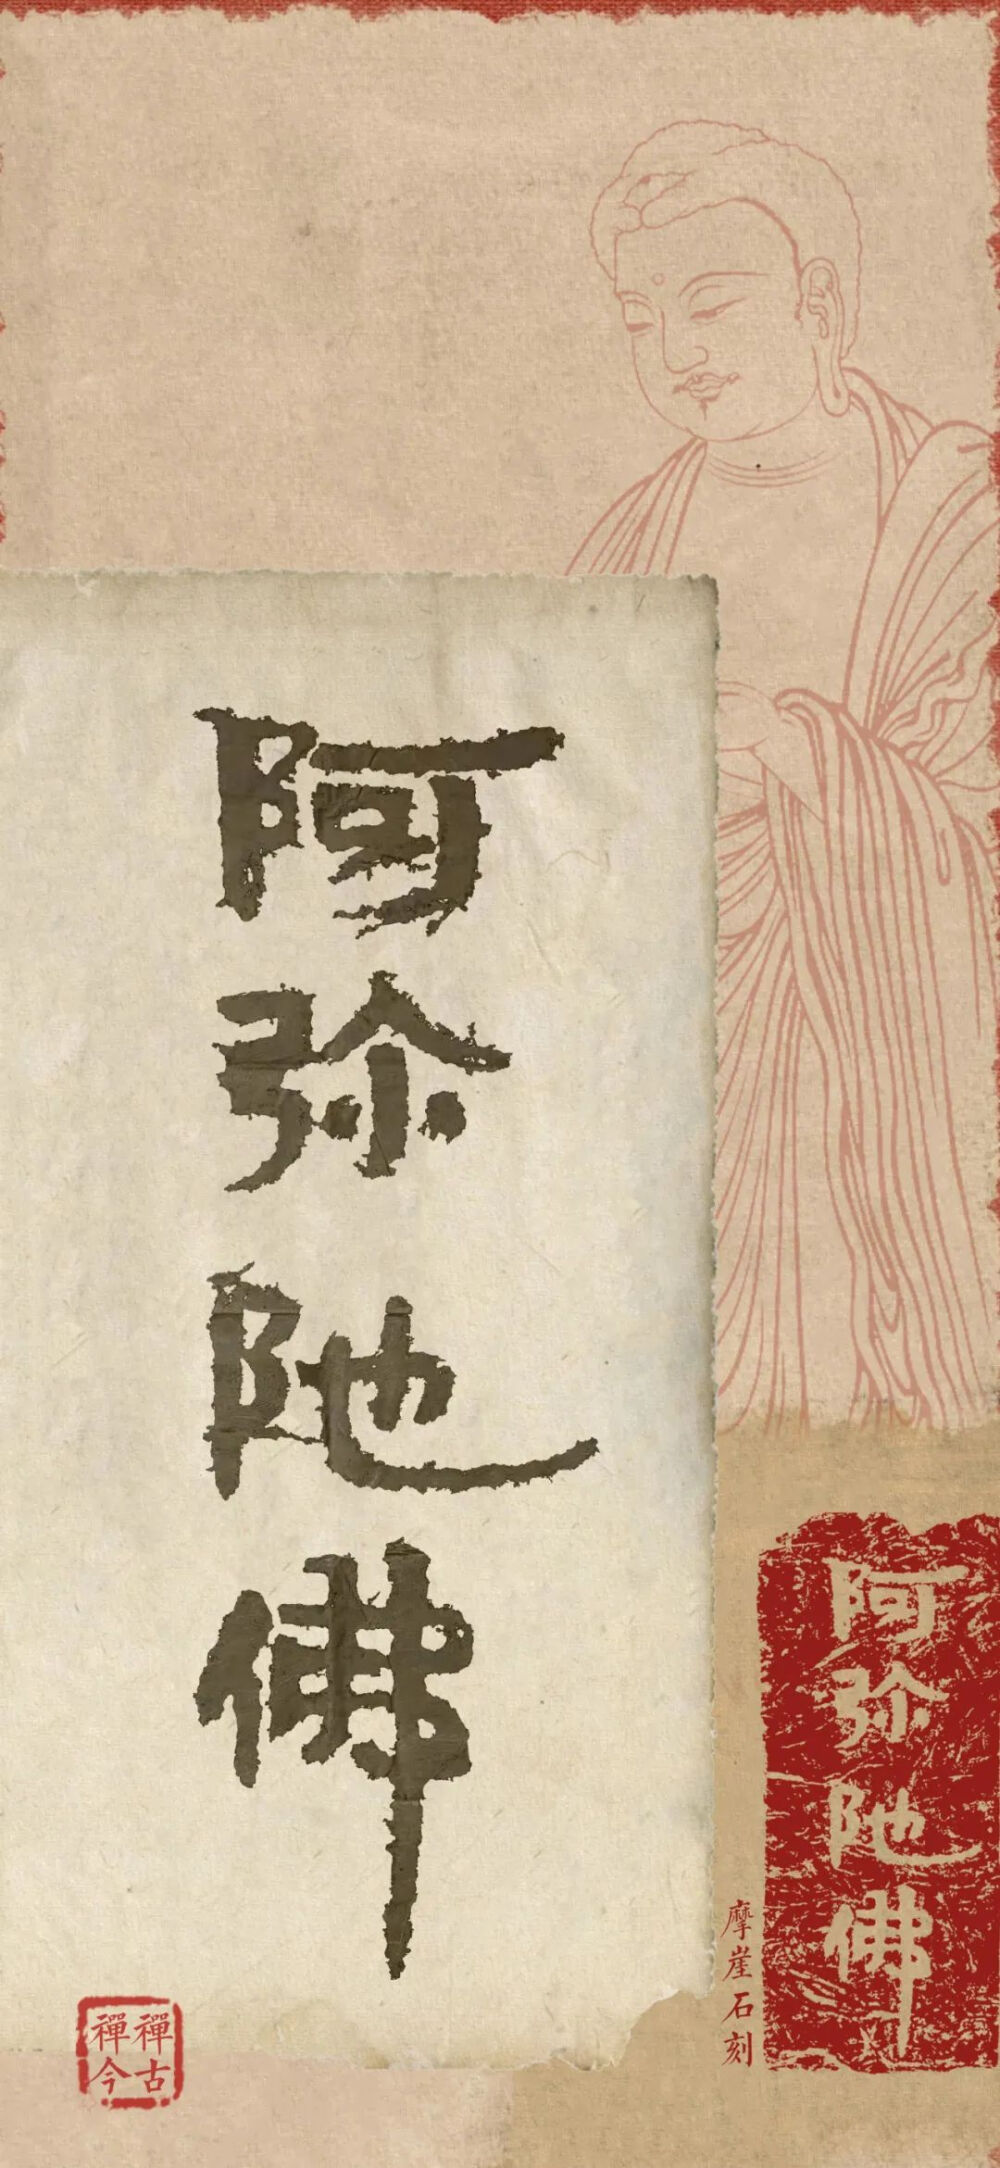 阿弥陀佛
阿弥陀佛
摩崖石刻
禪古
禪今